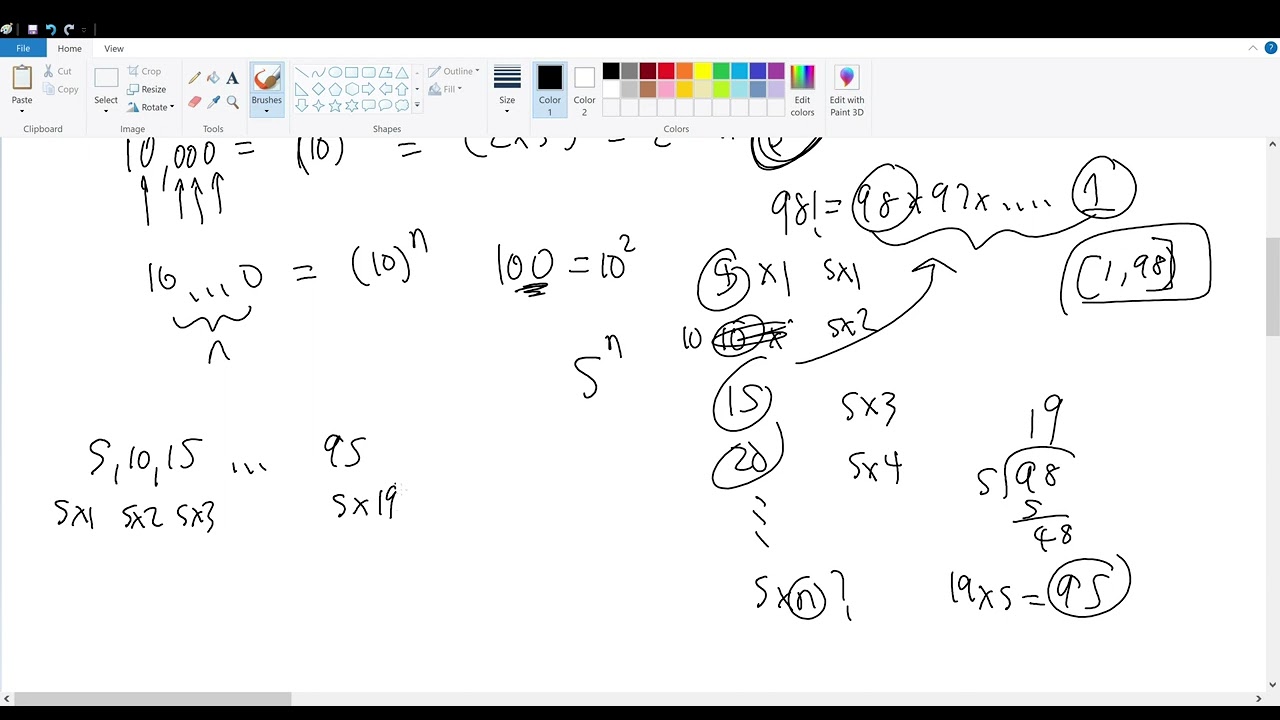 File Home View
Paste Cut Copy Select Crop Resize Rotate Brushes Outline Fill Size Color 1 Color 2 Edit colors Edit with Paint 3D
Clipboard Image Tools Shapes Colors
10,000 = (10) = (2x5) = 2
98! = 98 x 97 x .... 1
[1,98]
10...0 = (10)^n
n
100 = 10^2
5^n
5 x 1 5x1
10 10 x 5x2
15 5x3
20 5x4
5xn?
5,10,15 ... 95
5x1 5x2 5x3 5x19
19
5)98
5
48
19x5 = 95